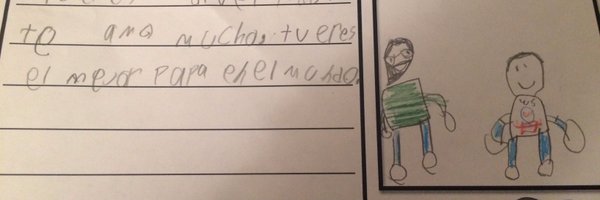 te ama muchas tu eres
el mejor papa en el mundo